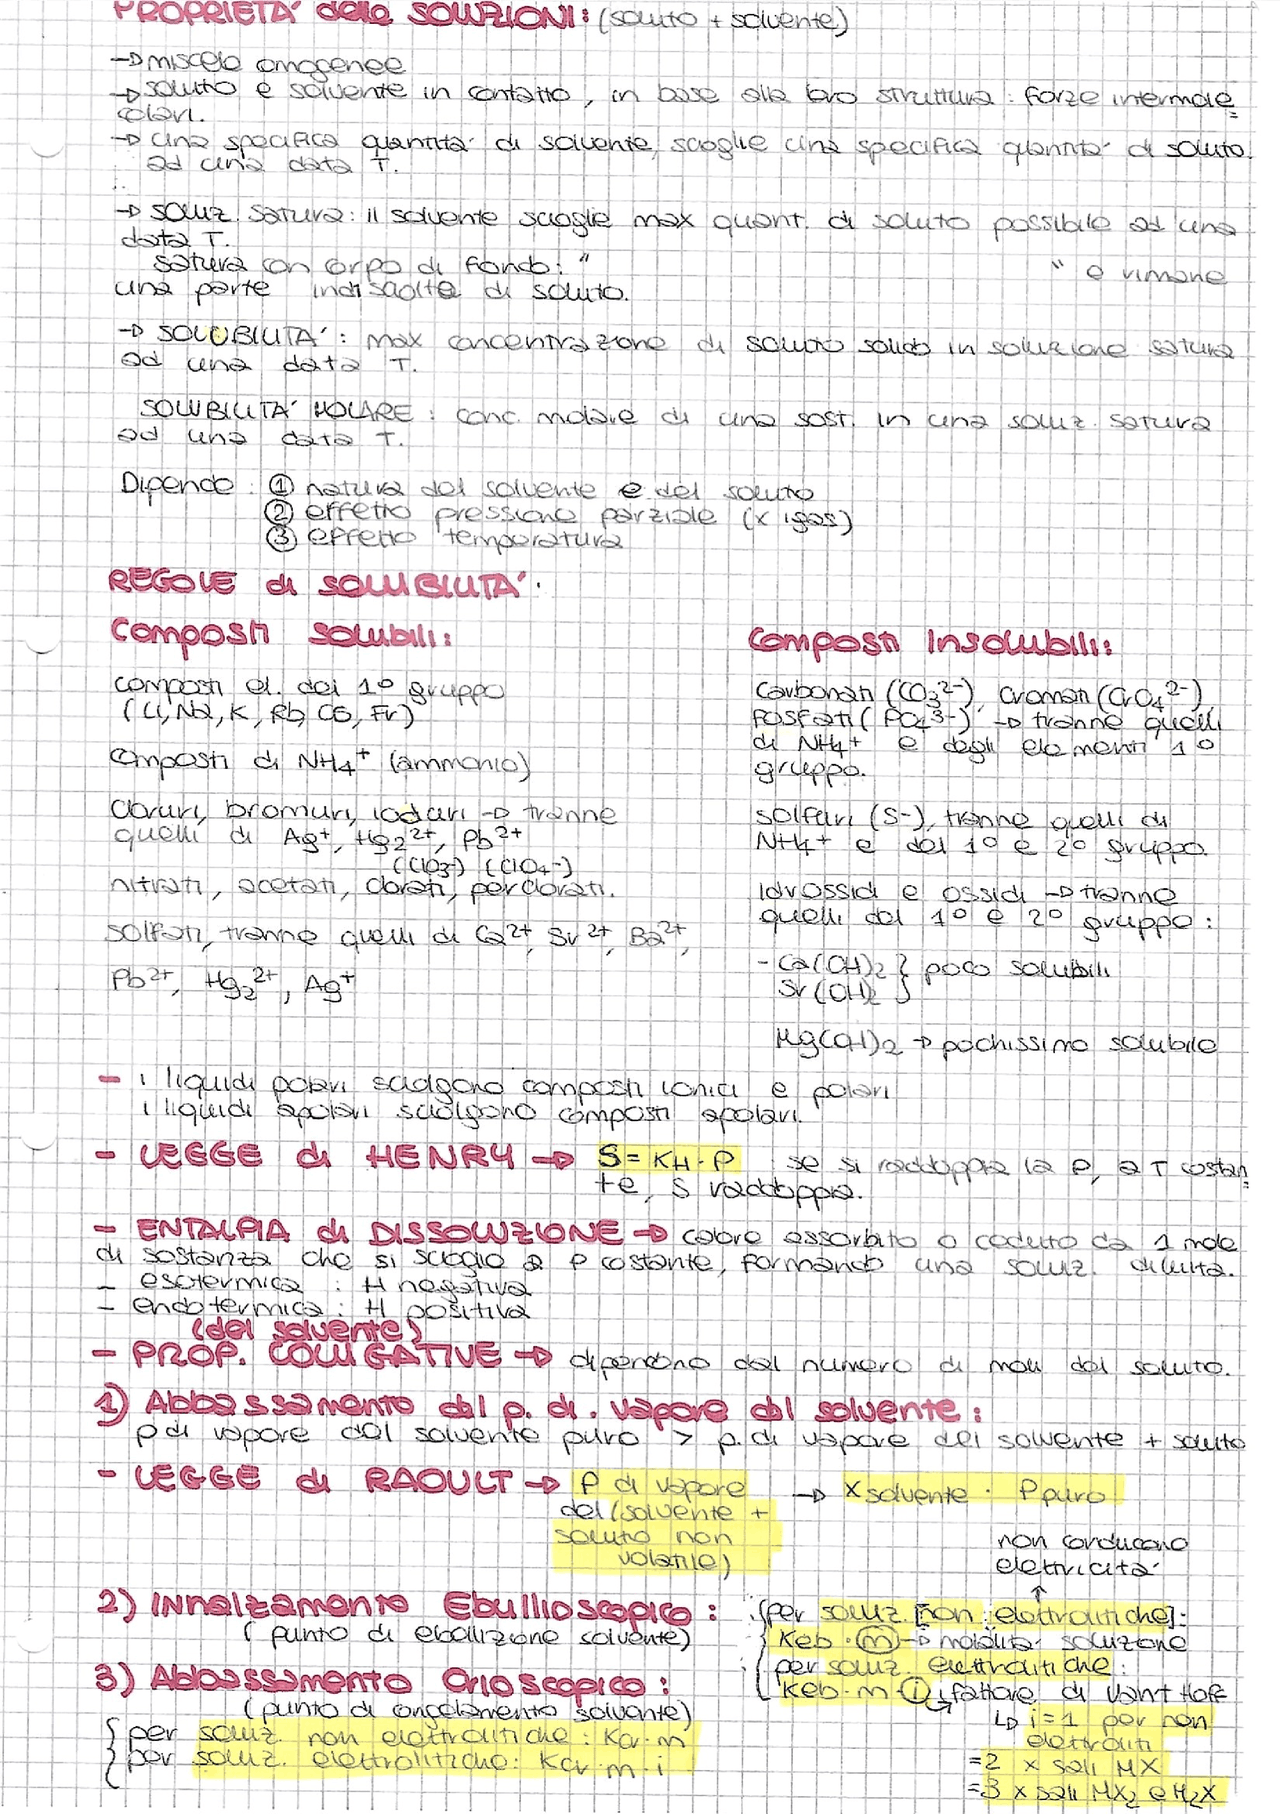 PROPRIETA' delle SOLUZIONI: (soluto + solvente)
→ miscele omogenee
→ soluto e solvente in contatto, in base alla loro struttura: forze intermole=
colari.
→ una specifica quantita' di solvente, scioglie una specifica quantita' di soluto
ad una data T.
→ soluz. satura: il solvente scioglie max quant. di soluto possibile ad una
data T.
satura con corpo di fondo: " " e rimane
una parte indisciolta di soluto.
→ SOLUBILITA': max concentrazione di soluto solido in soluzione satura
ad una data T.
SOLUBILITA' MOLARE: conc. molare di una sost. in una soluz. satura
ad una data T.
Dipende: ① natura del solvente e del soluto
② effetto pressione parziale (x i gas)
③ effetto temperatura
REGOLE di SOLUBILITA'.
Composti Solubili:
composti el. del 1° gruppo
(Li, Na, K, Rb, Cs, Fr)
composti di NH4+ (ammonio)
cloruri, bromuri, ioduri → tranne
quelli di Ag+, Hg2 2+, Pb2+
(ClO3-) (ClO4-)
nitrati, acetati, clorati, perclorati.
solfati, tranne quelli di Ca2+, Sr2+, Ba2+,
Pb2+, Hg2 2+, Ag+
Composti Insolubili:
Carbonati (CO3 2-), cromati (CrO4 2-)
fosfati (PO4 3-) → tranne quelli
di NH4+ e degli elementi 1°
gruppo.
solfuri (S-), tranne quelli di
NH4+ e del 1° e 2° gruppo.
idrossidi e ossidi → tranne
quelli del 1° e 2° gruppo:
- Ca(OH)2 } poco solubili
Sr(OH)2 }
Mg(OH)2 → pochissimo solubile
- i liquidi polari sciolgono composti ionici e polari
i liquidi apolari sciolgono composti apolari.
- LEGGE di HENRY → S = KH · P se si raddoppia la P, a T costan=
te, S raddoppia.
- ENTALPIA di DISSOLUZIONE → calore assorbito o ceduto da 1 mole
di sostanza che si scioglie a P costante, formando una soluz. diluita.
- esotermica: H negativa
- endotermica: H positiva
(del solvente)
- PROP. COLLIGATIVE → dipendono dal numero di moli del soluto.
1) Abbassamento del p. di. vapore del solvente:
p di vapore del solvente puro > p. di vapore del solvente + soluto
- LEGGE di RAOULT → P di vapore → X solvente · P puro
del (solvente +
soluto non
volatile)
non conducono
elettricita'
↑
2) Innalzamento Ebullioscopico: { per soluz. [non elettrolitiche]:
( punto di ebollizione solvente) Keb · m → molalita' soluzione
{ per soluz. elettrolitiche:
Keb · m · i → fattore di Van't Hoff
↳ i = 1 per non
elettroliti
= 2 x sali MX
= 3 x sali MX2 e M2X
3) Abbassamento Crioscopico:
(punto di congelamento solvente)
{ per soluz. non elettrolitiche: Kcr · m
{ per soluz. elettrolitiche: Kcr · m · i